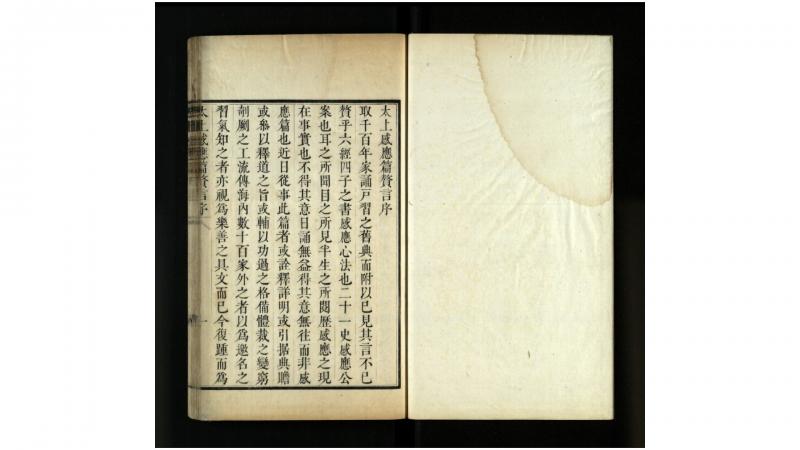 太上感應篇贅言序
取千百年家誦戸習之舊典而附以已見其言不已
贅乎六經四子之書感應心法也二十一史感應公
案也耳之所聞目之所見半生之所閱歷感應之現
在事實也不得其意日誦無益得其意無往而非感
應篇也近日從事此篇者或詮釋詳明或引据典贍
或叅以釋道之旨或輔以功過之格備體裁之變窮
剞劂之工流傳海內數十百家外之者以爲邀名之
習氣知之者亦視爲樂善之具文而已今復踵而爲
太上感應篇贅言序
一